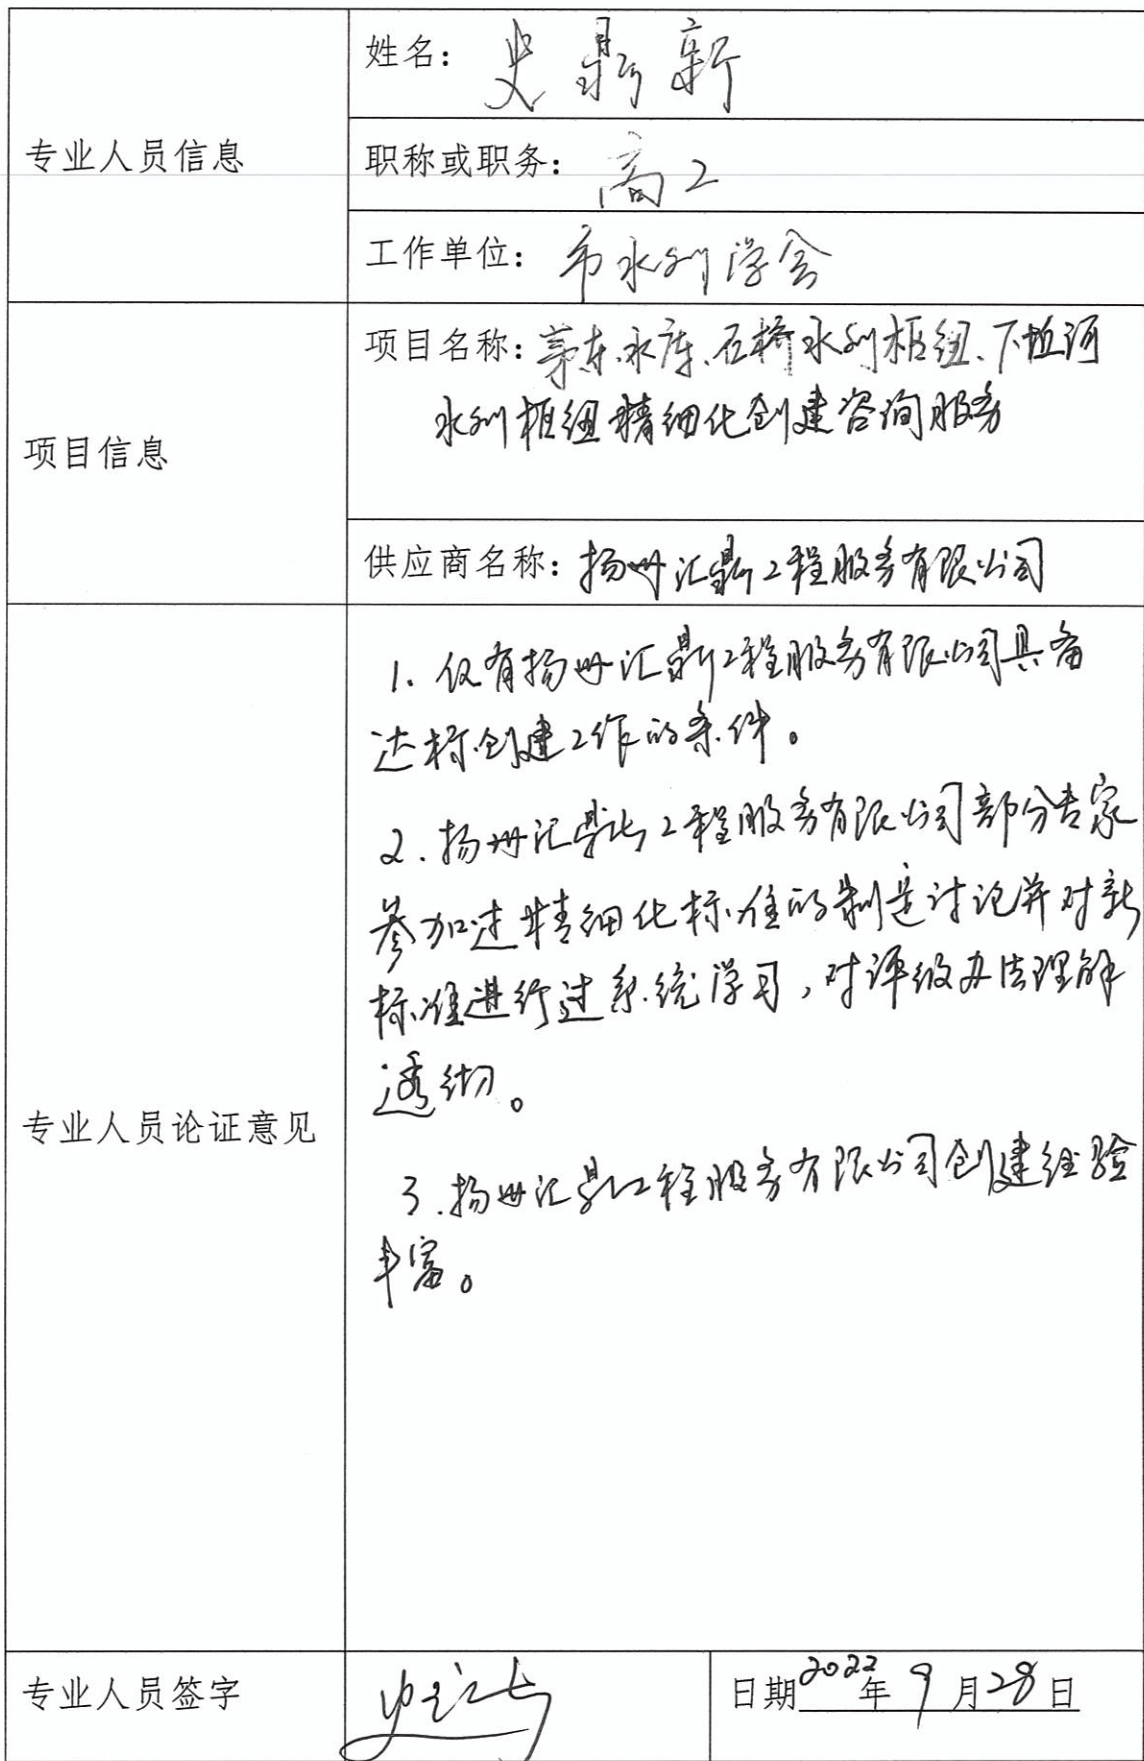 专业人员信息
姓名：史鼎新
职称或职务：高工
工作单位：市水利学会
项目信息
项目名称：茅东水库、石桥水利枢纽、下坵河
水利枢纽精细化创建咨询服务
供应商名称：扬州汇鼎工程服务有限公司
专业人员论证意见
1、仅有扬州汇鼎工程服务有限公司具备
达标创建工作的条件。
2、扬州汇鼎工程服务有限公司部分专家
参加过精细化标准的制定讨论并对新
标准进行过系统学习，对评级办法理解
透彻。
3、扬州汇鼎工程服务有限公司创建经验
丰富。
专业人员签字
日期2022年9月28日